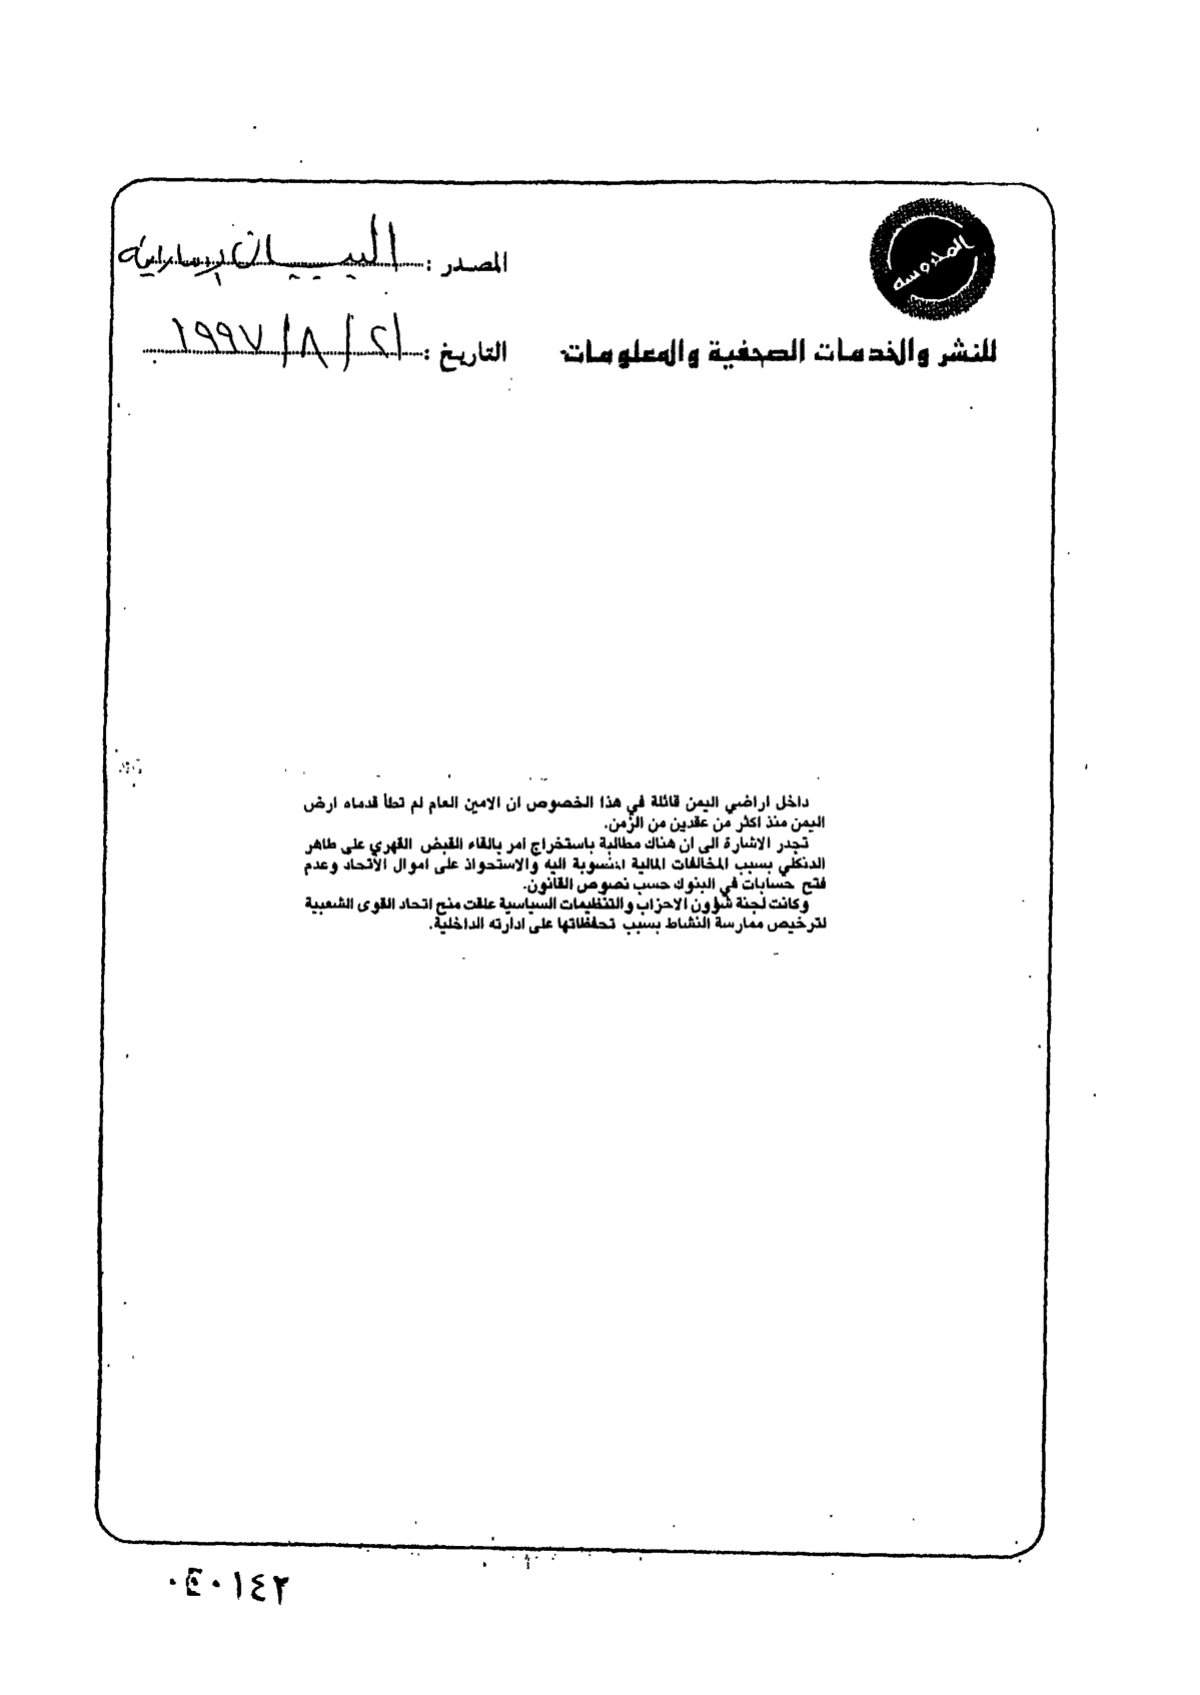 المحروسة
المصدر : البيان الإماراتية
للنشر والخدمات الصحفية والمعلومات
التاريخ : ٢١/ ٨/ ١٩٩٧
داخل اراضي اليمن قائلة في هذا الخصوص ان الامين العام لم تطأ قدماه ارض
اليمن منذ اكثر من عقدين من الزمن.
تجدر الاشارة الى ان هناك مطالبة باستخراج امر بالقاء القبض القهري على طاهر
الدنكلي بسبب المخالفات المالية المنسوبة اليه والاستحواذ على اموال الاتحاد وعدم
فتح حسابات في البنوك حسب نصوص القانون.
وكانت لجنة شؤون الاحزاب والتنظيمات السياسية علقت منح اتحاد القوى الشعبية
لترخيص ممارسة النشاط بسبب تحفظاتها على ادارته الداخلية.